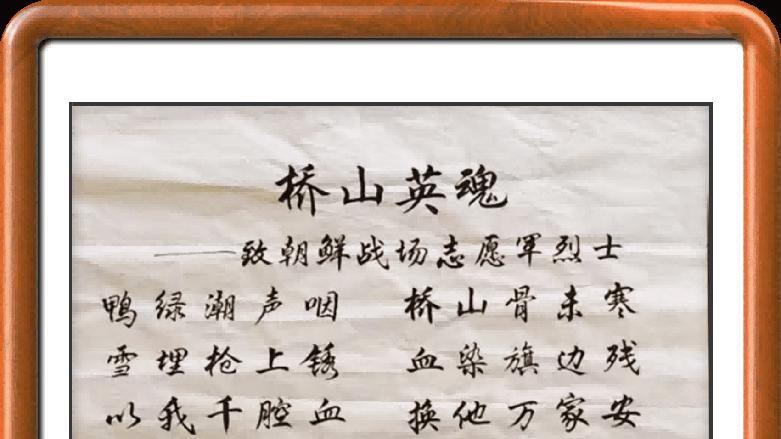 桥山英魂
——致朝鲜战场志愿军烈士
鸭绿潮声咽 桥山骨未寒
雪埋枪上锈 血染旗边残
以我千腔血 换他万家安